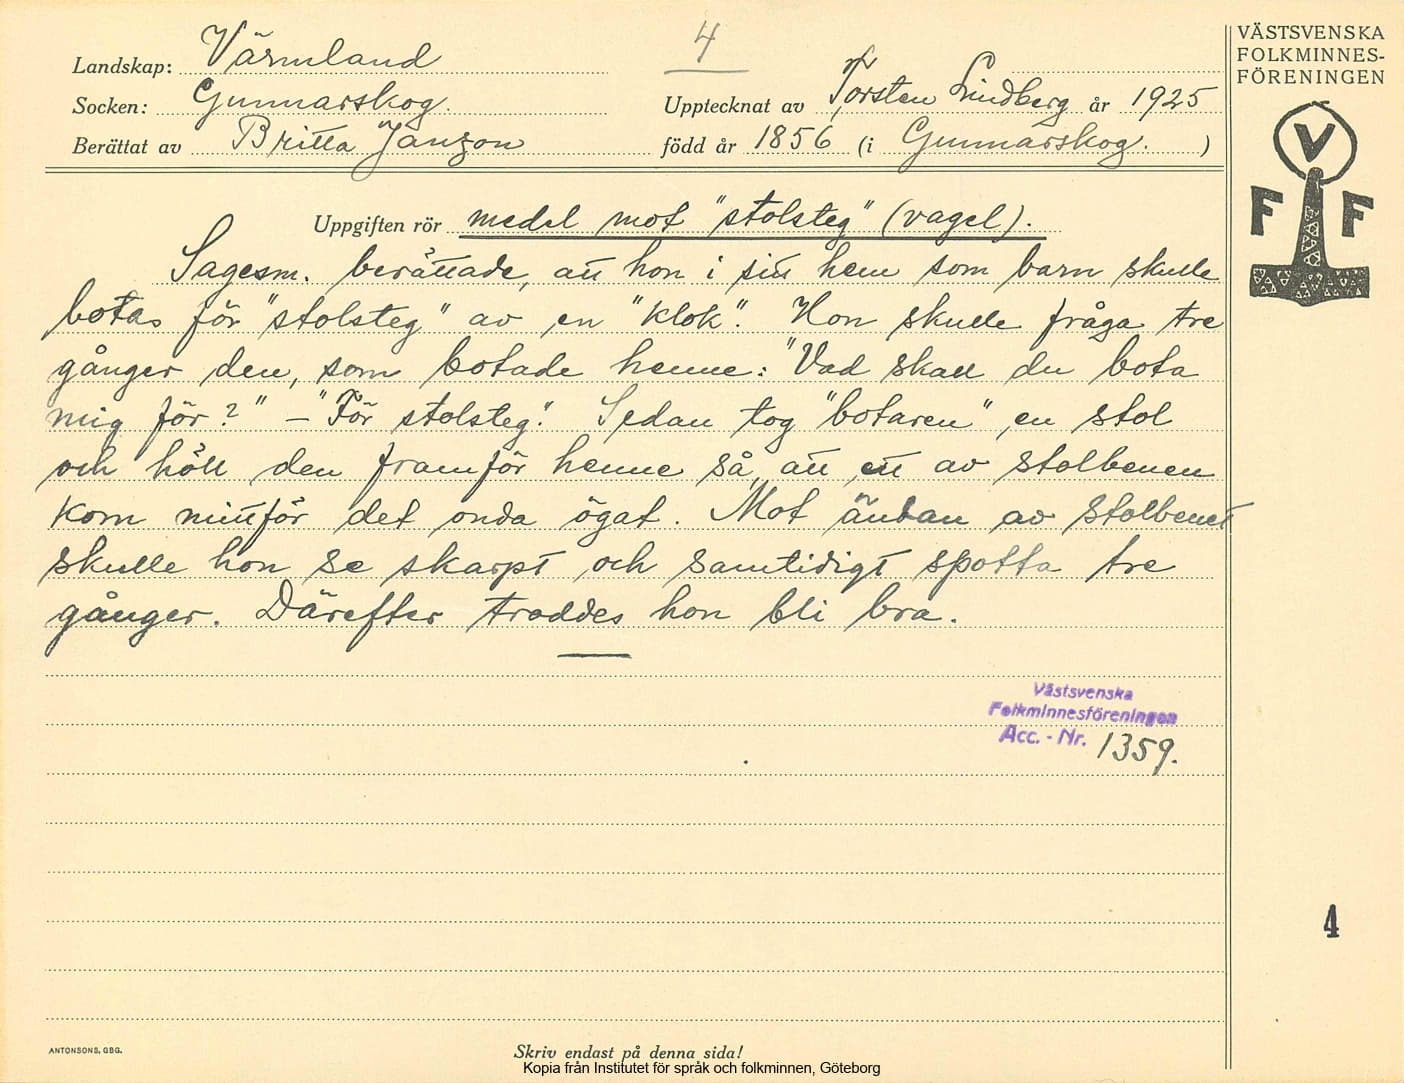 Landskap: Värmland
Socken: Gunnarskog.
Berättat av Britta Janzon
4
Upptecknat av Torsten Lindberg år 1925
född år 1856 (i Gunnarskog. )
VÄSTSVENSKA
FOLKMINNES-
FÖRENINGEN
V
F F
Uppgiften rör medel mot "stolsteg" (vagel).
Sagesm. berättade, att hon i sitt hem som barn skulle
botas för "stolsteg" av en "klok". Hon skulle fråga tre
gånger den, som botade henne: "Vad skall du bota
mig för?" – "För stolsteg". Sedan tog "botaren" en stol
och höll den framför henne så, att ett av stolbenen
kom mittför det onda ögat. Mot ändan av stolbenet
skulle hon se skarpt och samtidigt spotta tre
gånger. Därefter troddes hon bli bra.
Västsvenska
Folkminnesföreningen
Acc. - Nr. 1359.
4
ANTONSONS, GBG.
Skriv endast på denna sida!
Kopia från Institutet för språk och folkminnen, Göteborg